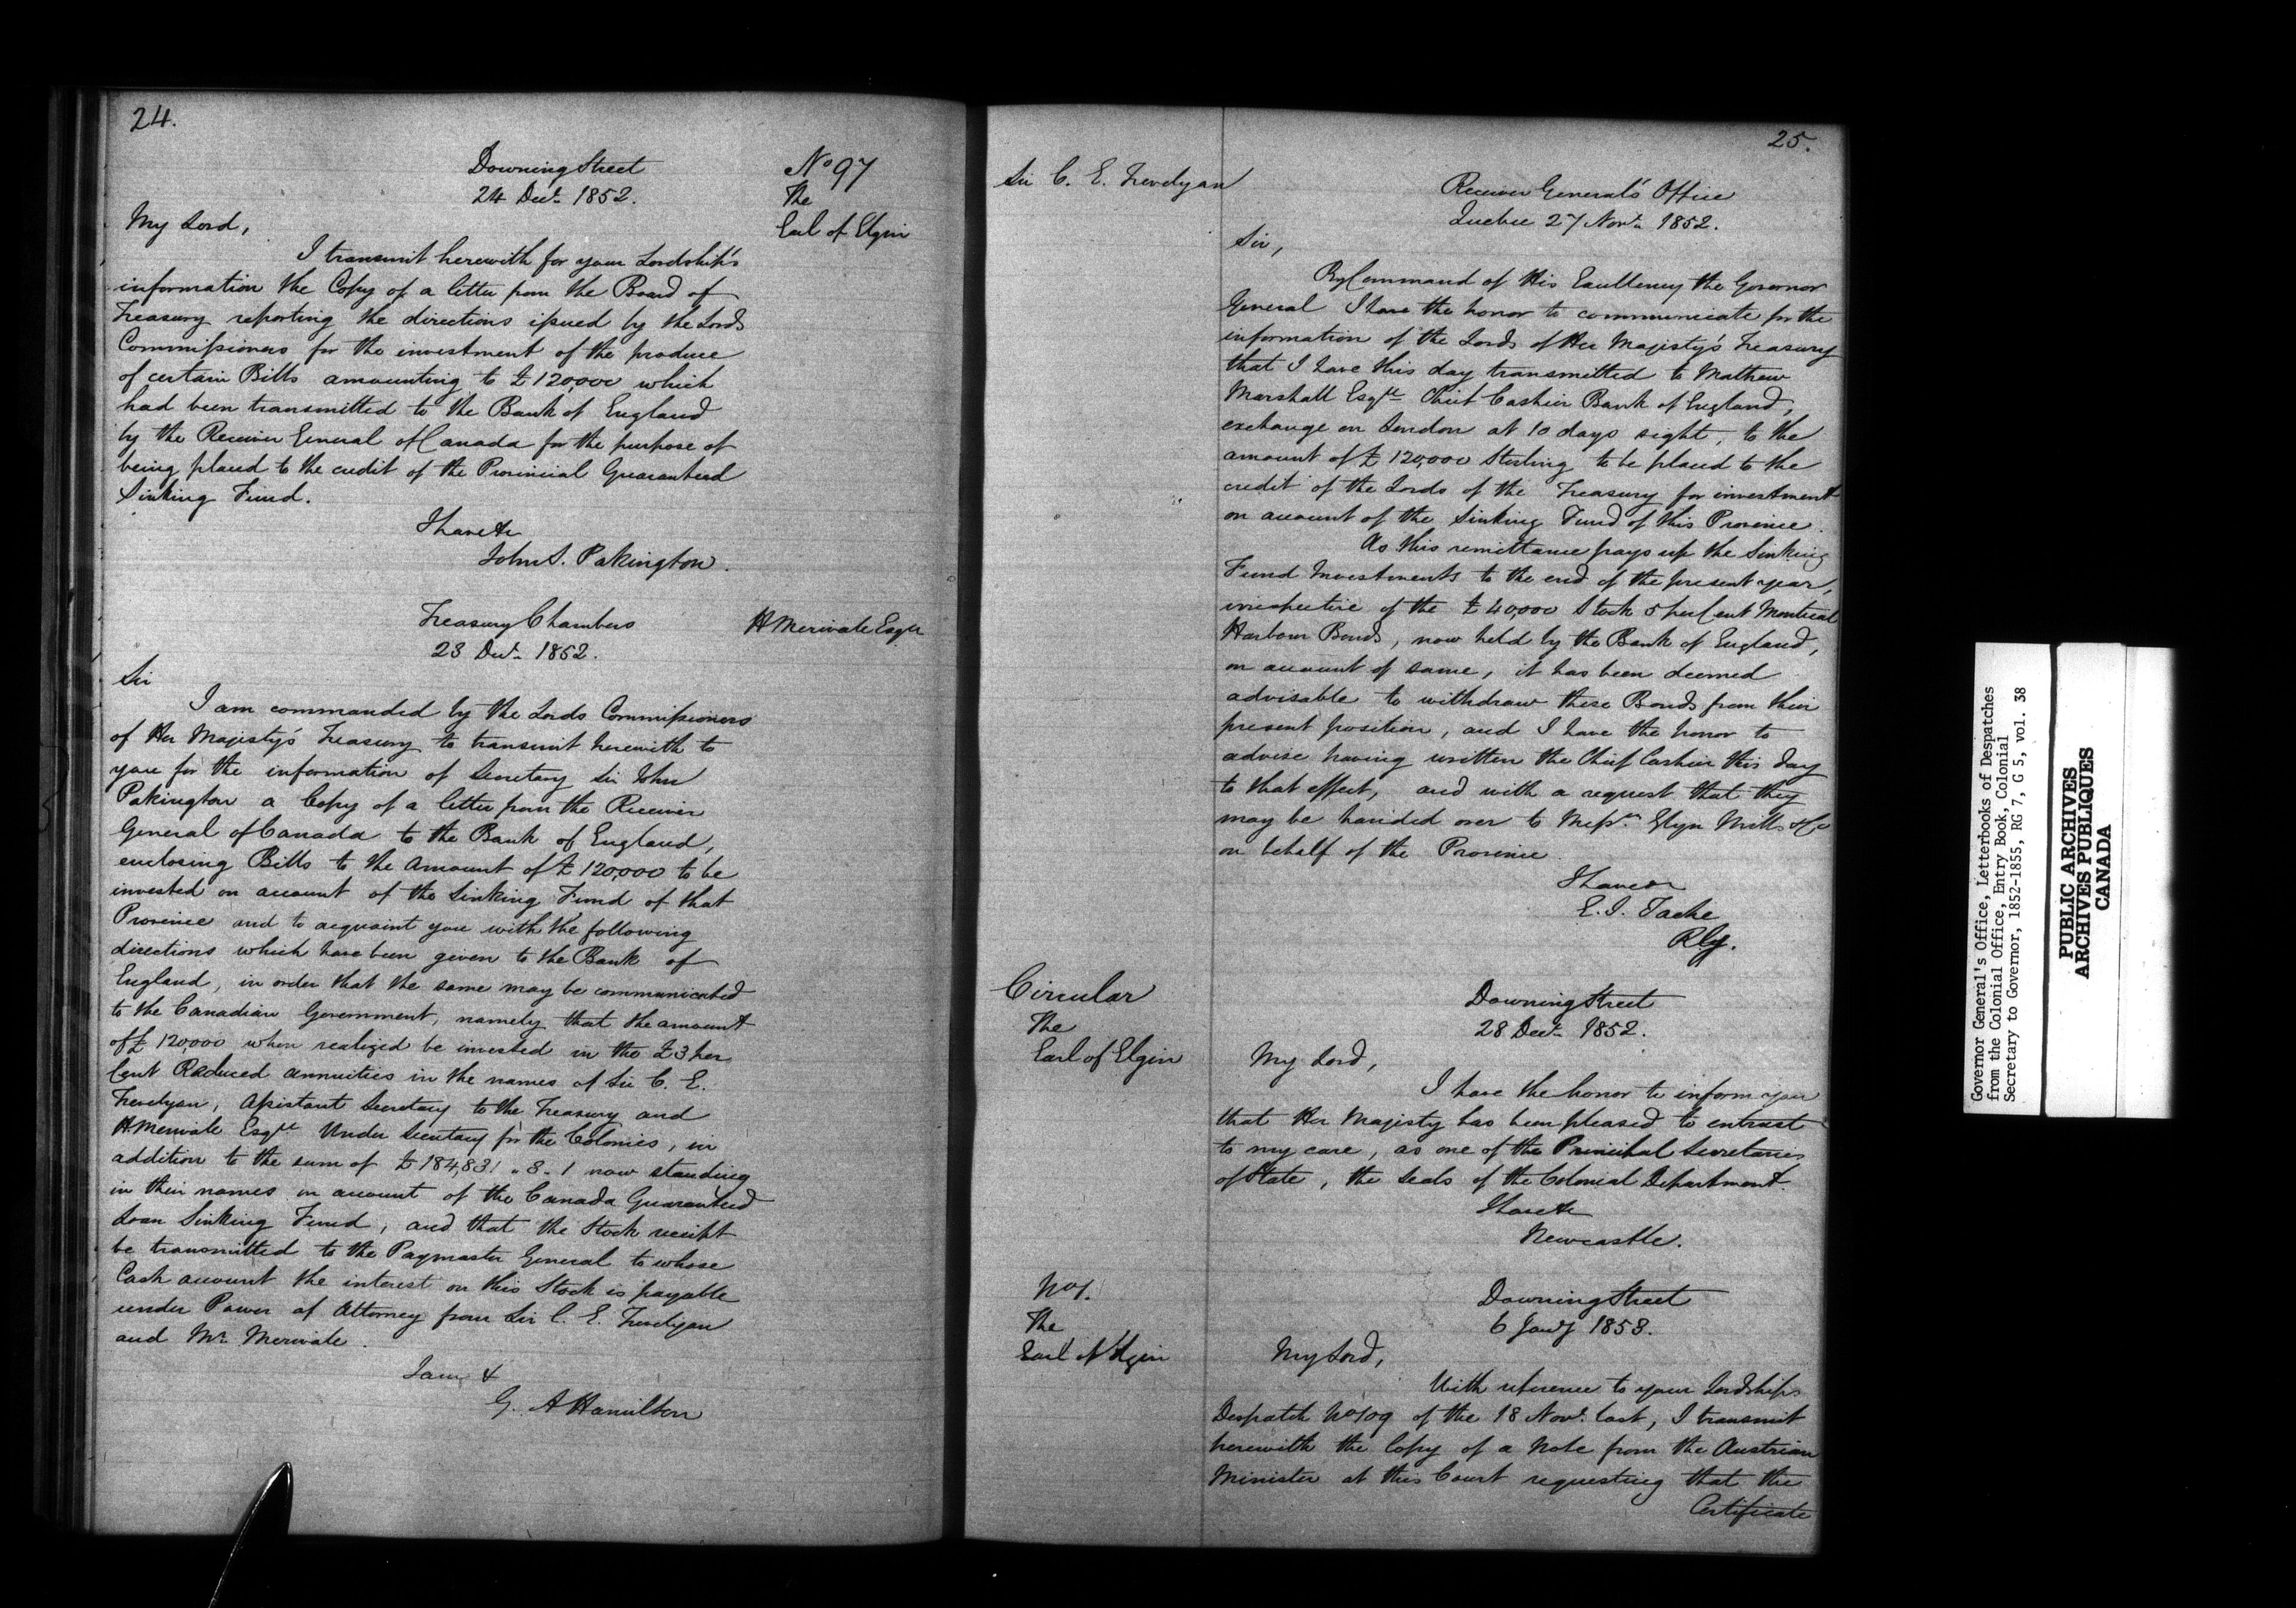 24.
Downing Street
24 Decr. 1852.
No 97
The
Earl of Elgin
My Lord,
I transmit herewith for your Lordship's
information the Copy of a letter from the Board of
Treasury reporting the directions issued by the Lords
Commissioners for the investment of the produce
of certain Bills amounting to £120,000 which
had been transmitted to the Bank of England
by the Receiver General of Canada for the purpose of
being placed to the credit of the Provincial Guaranteed
Sinking Fund.
I have &c
John S. Pakington.
Treasury Chambers
23 Decr. 1852.
H Merivale Esqre
Sir
I am commanded by the Lords Commissioners
of Her Majesty's Treasury to transmit herewith to
you for the information of Secretary Sir John
Pakington a Copy of a letter from the Receiver
General of Canada to the Bank of England,
enclosing Bills to the Amount of £120,000 to be
invested on account of the Sinking Fund of that
Province and to acquaint you with the following
directions which have been given to the Bank of
England, in order that the same may be communicated
to the Canadian Government, namely that the amount
of £120,000 when realized be invested in the £3 per
Cent Reduced annuities in the names of Sir C. E.
Trevelyan, Assistant Secretary to the Treasury and
H. Merivale Esqre Under Secretary for the Colonies, in
addition to the sum of £184,831 " 8 - 1 now standing
in their names on account of the Canada Guaranteed
Loan Sinking Fund, and that the Stock receipt
be transmitted to the Paymaster General to whose
Cash account the interest on this Stock is payable
under Power of Attorney from Sir C. E. Trevelyan
and Mr. Merivale.
I am &
G. A Hamilton
25.
Sir C. E. Trevelyan
Receiver General's Office
Quebec 27 Novr. 1852.
Sir,
By Command of His Excellency the Governor
General I have the honor to communicate for the
information of the Lords of Her Majesty's Treasury
that I have this day transmitted to Mathew
Marshall Esqre Chief Cashier Bank of England,
exchange on London at 10 days sight, to the
amount of £120,000 Sterling to be placed to the
credit of the Lords of the Treasury for investment
on account of the Sinking Fund of this Province.
As this remittance pays up the Sinking
Fund Investments to the end of the present year,
irrespective of the £40,000 Stock 5 per Cent Montreal
Harbour Bonds, now held by the Bank of England,
on account of same, it has been deemed
advisable to withdraw these Bonds from their
present position, and I have the honor to
advise having written the Chief Cashier this day
to that effect, and with a request that they
may be handed over to Messrs. Glyn Mills & Co
on behalf of the Province.
I have &c
E. P. Tache
R. G.
Circular
The
Earl of Elgin
Downing Street
28 Decr. 1852.
My Lord,
I have the honor to inform you
that Her Majesty has been pleased to entrust
to my care, as one of the Principal Secretaries
of State, the Seals of the Colonial Department.
I have &c
Newcastle.
No 1.
The
Earl of Elgin
Downing Street
6 Jany 1853.
My Lord,
With reference to your Lordship's
Despatch No 109 of the 18 Novr. last, I transmit
herewith the Copy of a Note from the Austrian
Minister at this Court requesting that the
Certificate
Governor General's Office, Letterbooks of Despatches
from the Colonial Office, Entry Book, Colonial
Secretary to Governor, 1852-1855, RG 7, G 5, vol. 38
PUBLIC ARCHIVES
ARCHIVES PUBLIQUES
CANADA